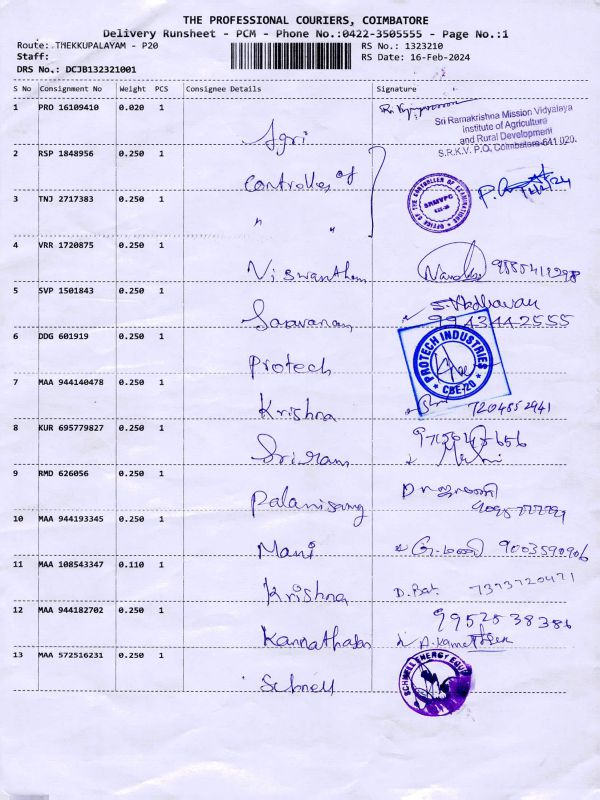 THE PROFESSIONAL COURIERS, COIMBATORE
Delivery Runsheet - PCM - Phone No.:0422-3505555 - Page No.:1
Route: THEKKUPALAYAM - P20
RS No.: 1323210
Staff:
RS Date: 16-Feb-2024
DRS No.: DCJB132321001
S No Consignment No Weight PCS Consignee Details Signature
1 PRO 16109410 0.020 1 Agri
Sri Ramakrishna Mission Vidyalaya
Institute of Agriculture
and Rural Development
S.R.K.V. P.O, Coimbatore-641 020.
2 RSP 1848956 0.250 1 Controller of
OFFICE OF THE CONTROLLER OF EXAMINATIONS
SRMVPC
3 TNJ 2717383 0.250 1 " "
4 VRR 1720875 0.250 1 Viswanthan
5 SVP 1501843 0.250 1 Saravanan S. Madhavan
9943442555
6 DDG 601919 0.250 1 Protech
PROTECH INDUSTRIES
CBE-20
7 MAA 944140478 0.250 1 Krishna 7204852941
8 KUR 695779827 0.250 1 Sriram
9 RMD 626056 0.250 1 Palanisamy
10 MAA 944193345 0.250 1 Mani 9003590906
11 MAA 108543347 0.110 1 Krishna 7373720471
12 MAA 944182702 0.250 1 9952538386
13 MAA 572516231 0.250 1 Schnell
SCHNELL ENERGY EQUI